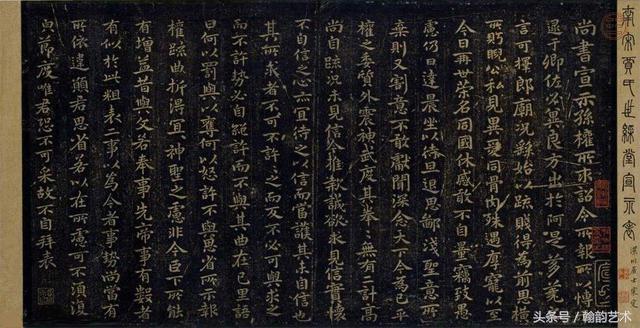 南宋賈氏世綵堂宣示表
尚書宣示孫權所求詔令所報所以博示
逮于卿佐必冀良方出於阿是芻蕘之
言可擇郎廟況繇始以疏賤得為前恩橫
所盻睨公私見異愛同骨肉殊遇厚寵以至
今日再世榮名同國休慼敢不自量竊致愚
慮仍日達晨坐以待旦退思鄙淺聖意所
棄則又割意不敢獻聞深念天下今為已平
權之委質外震神武度其拳拳無有二計高
尚自疏況未見信今推款誠欲求見信實懷
不自信之心亦宜待之以信而當護其未自信也
其所求者不可不許許之而反不必可與求之
而不許勢必自絕許而不與其曲在己里語
曰何以罰與以奪何以怒許不與思省所示報
權疏曲折得宜宜神聖之慮非今臣下所能
有增益昔與文若奉事先帝事有數者
有似於此粗表二事以為今者事勢尚當有
所依違願君思省若以在所慮可不須復
皃節度唯君恐不可采故不自拜表
头条号/翰韵艺术